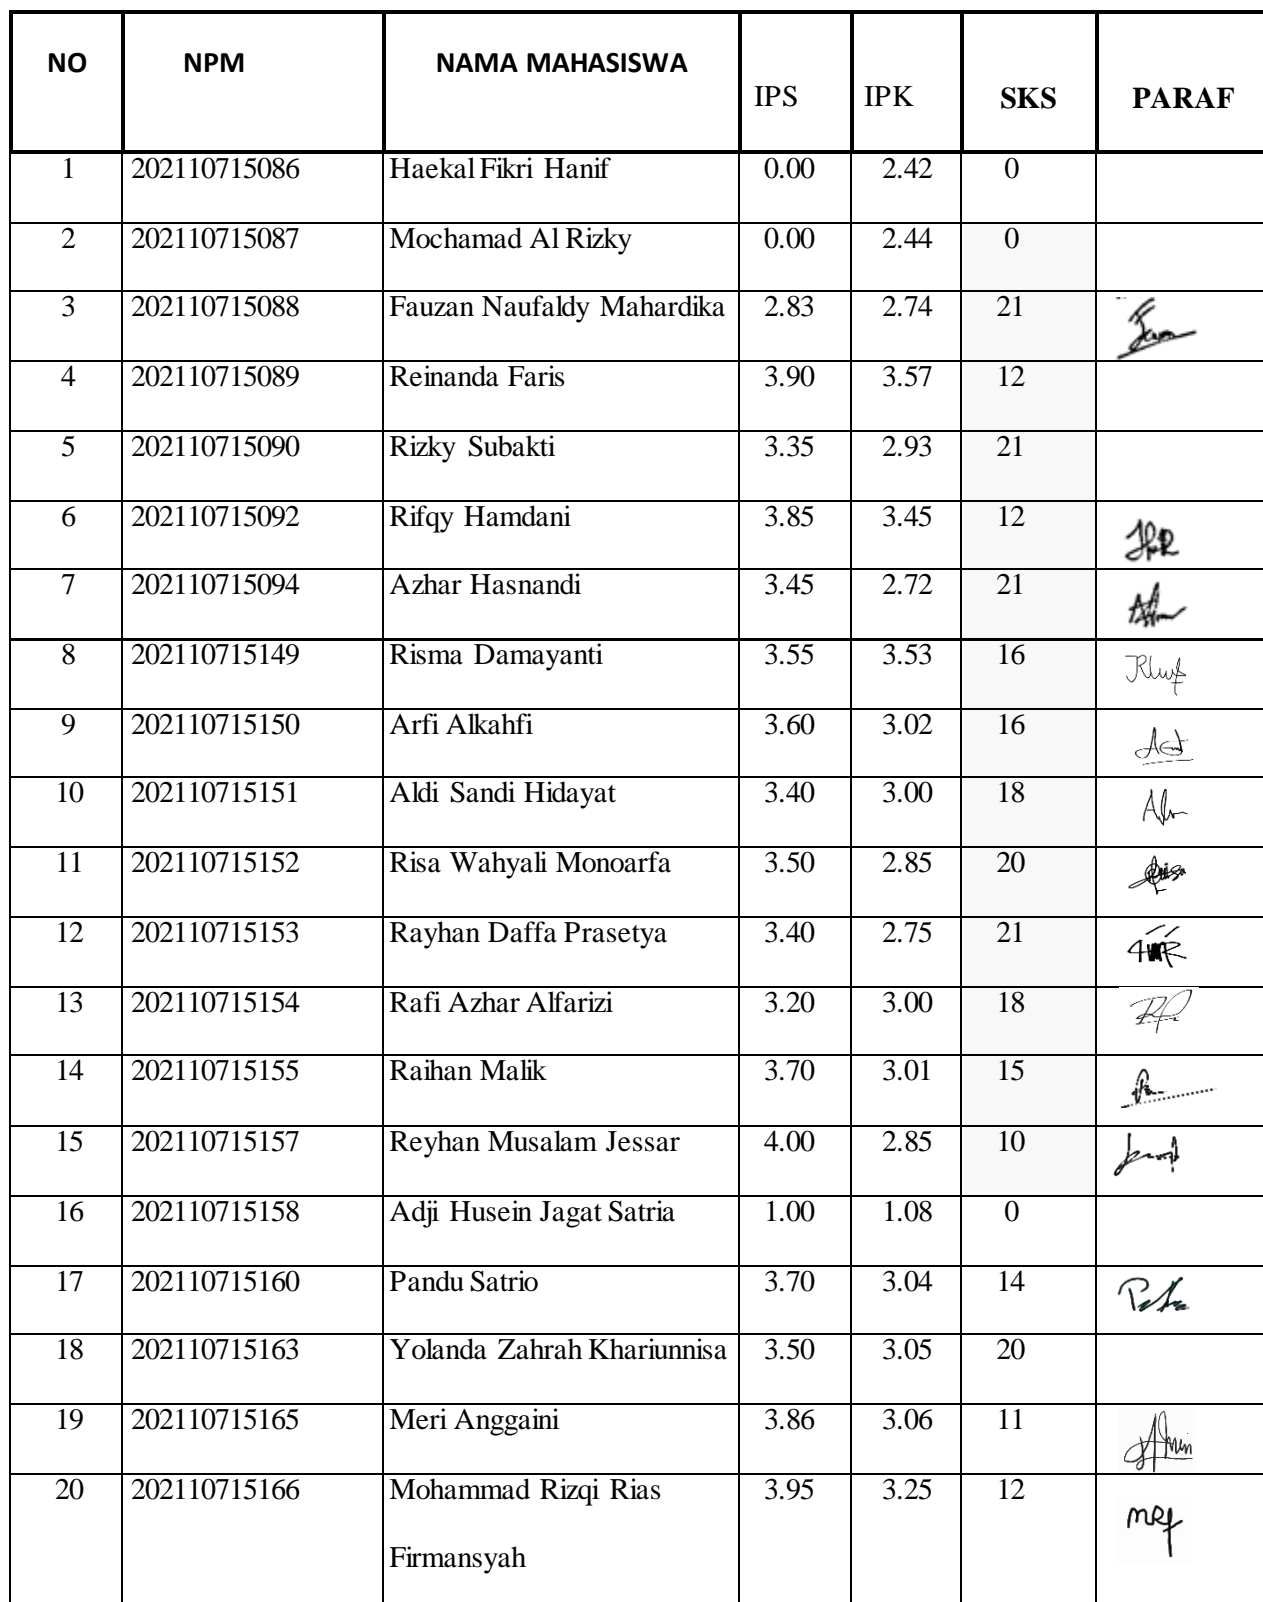 NO NPM NAMA MAHASISWA IPS IPK SKS PARAF
1 202110715086 Haekal Fikri Hanif 0.00 2.42 0
2 202110715087 Mochamad Al Rizky 0.00 2.44 0
3 202110715088 Fauzan Naufaldy Mahardika 2.83 2.74 21
4 202110715089 Reinanda Faris 3.90 3.57 12
5 202110715090 Rizky Subakti 3.35 2.93 21
6 202110715092 Rifqy Hamdani 3.85 3.45 12
7 202110715094 Azhar Hasnandi 3.45 2.72 21
8 202110715149 Risma Damayanti 3.55 3.53 16
9 202110715150 Arfi Alkahfi 3.60 3.02 16
10 202110715151 Aldi Sandi Hidayat 3.40 3.00 18
11 202110715152 Risa Wahyali Monoarfa 3.50 2.85 20
12 202110715153 Rayhan Daffa Prasetya 3.40 2.75 21
13 202110715154 Rafi Azhar Alfarizi 3.20 3.00 18
14 202110715155 Raihan Malik 3.70 3.01 15
15 202110715157 Reyhan Musalam Jessar 4.00 2.85 10
16 202110715158 Adji Husein Jagat Satria 1.00 1.08 0
17 202110715160 Pandu Satrio 3.70 3.04 14
18 202110715163 Yolanda Zahrah Khariunnisa 3.50 3.05 20
19 202110715165 Meri Anggaini 3.86 3.06 11
20 202110715166 Mohammad Rizqi Rias 3.95 3.25 12
Firmansyah